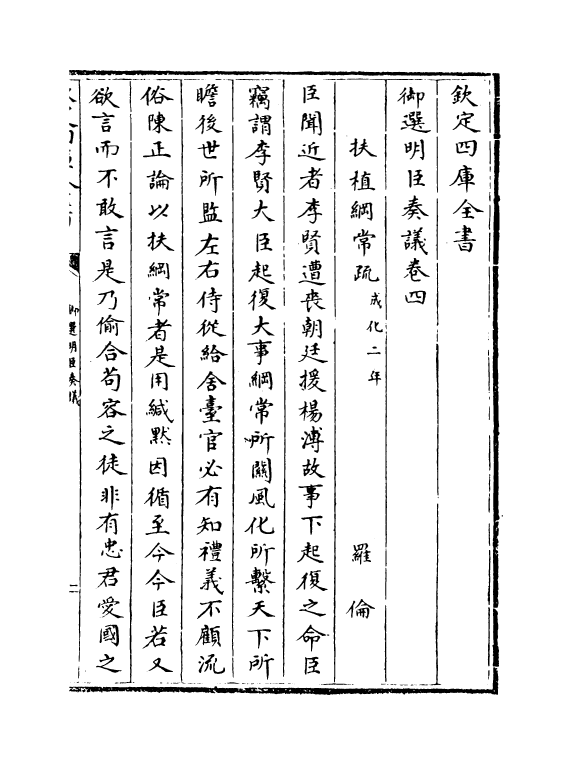 欽定四庫全書
御選明臣奏議卷四
扶植綱常疏成化二年　羅倫
臣聞近者李賢遭喪朝廷援楊溥故事下起復之命臣
竊謂李賢大臣起復大事綱常所關風化所繫天下所
瞻後世所監左右侍從給舍臺官必有知禮義不顧流
俗陳正論以扶綱常者是用緘默因循至今今臣若又
欲言而不敢言是乃偷合茍容之徒非有忠君愛國之
御選明臣奏議